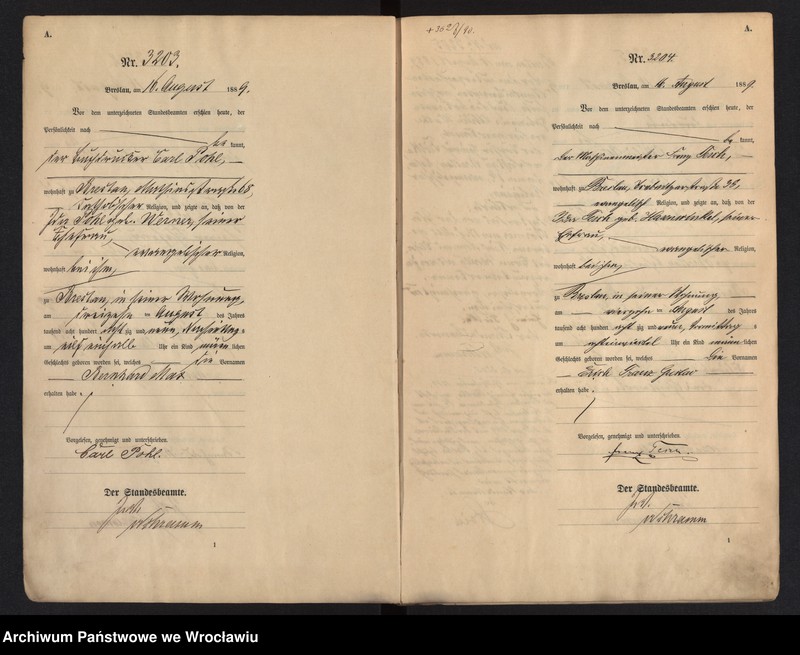 A.
Nr. 3203.
Breslau, am 16. August 1889.
Vor dem unterzeichneten Standesbeamten erschien heute, der
Persönlichkeit nach
be kannt,
der Buchdrucker Carl Pohl,
wohnhaft zu Breslau,
katholischer Religion, und zeigte an, daß von der
Pohl geb. Werner, seiner
Ehefrau,
evangelischer Religion,
wohnhaft bei ihm,
zu Breslau, in seiner Wohnung,
am dreizehn ten August des Jahres
tausend acht hundert acht zig und neun, Nachmittag s
um elf einhalb Uhr ein Kind männ lichen
Geschlechts geboren worden sei, welches die Vornamen
Bernhard Max
erhalten habe.
Vorgelesen, genehmigt und unterschrieben
Carl Pohl.
Der Standesbeamte.
1
A.
Nr. 3204.
Breslau, am 16. August 1889.
Vor dem unterzeichneten Standesbeamten erschien heute, der
Persönlichkeit nach
be kannt,
der Maschinenmeister Franz
wohnhaft zu Breslau,
evangelisch Religion, und zeigte an, daß von der
geb. seiner
Ehefrau,
evangelischer Religion,
wohnhaft bei ihm,
zu Breslau, in seiner Wohnung,
am vierzehn ten August des Jahres
tausend acht hundert acht zig und neun, Vormittag s
um Uhr ein Kind männ lichen
Geschlechts geboren worden sei, welches die Vornamen
Erich Franz
erhalten habe.
Vorgelesen, genehmigt und unterschrieben
Franz
Der Standesbeamte.
1
Archiwum Państwowe we Wrocławiu